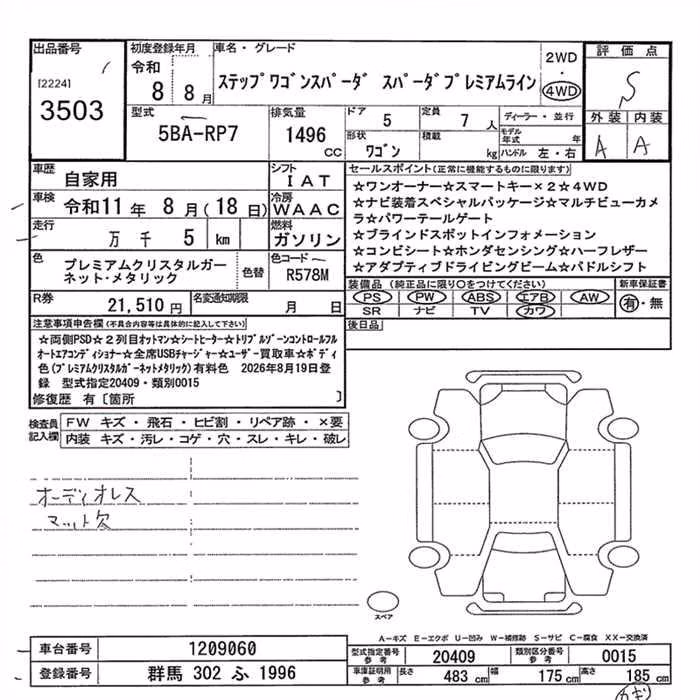 出品番号
[2224]
3503
初度登録年月
令和
8 8月
車名・グレード
ステップワゴンスパーダ スパーダプレミアムライン
2WD
・
4WD
評価点
S
外装 内装
A A
型式
5BA-RP7
排気量
1496
CC
ドア 5
定員 7 人
形状 ワゴン
積載 kg
ディーラー・並行
モデル年式 年
ハンドル 左・右
車歴
自家用
シフト
IAT
車検 令和11年 8月(18日)
冷房
WAAC
走行
万 千 5 km
燃料
ガソリン
色
プレミアムクリスタルガー
ネット・メタリック
色替
色コード
R578M
R券 21,510円
名変通知期限 月 日
セールスポイント(正常に機能するものに限ります)
☆ワンオーナー☆スマートキー×2☆4WD
☆ナビ装着スペシャルパッケージ☆マルチビューカメ
ラ☆パワーテールゲート
☆ブラインドスポットインフォメーション
☆コンビシート☆ホンダセンシング☆ハーフレザー
☆アダプティブドライビングビーム☆パドルシフト
装備品(純正品に限り〇をつけてください)
PS PW ABS エアB AW
SR ナビ TV カワ
新車保証書
有・無
後日品
注意事項申告欄(不具合内容等は具体的に記入して下さい)
☆両側PSD☆2列目オットマン☆シートヒーター☆トリプルゾーンコントロールフル
オートエアコンディショナー☆全席USBチャージャー☆ユーザー買取車☆ボディ
色(プレミアムクリスタルガーネットメタリック)有料色 2026年8月19日登
録 型式指定20409・類別0015
修復歴 有〔箇所 〕
検査員
記入欄
FW キズ・飛石・ヒビ割・リペア跡・×要
内装 キズ・汚レ・コゲ・穴・スレ・キレ・破レ
オーディオレス
マット欠
スペア
A-キズ E-エクボ U-凹み W-補修跡 S-サビ C-腐食 XX-交換済
車台番号 1209060
登録番号 群馬 302 ふ 1996
型式指定番号
参考
20409
類別区分番号
参考
0015
車庫証明用
参考
長さ 483 cm
幅 175 cm
高さ 185 cm